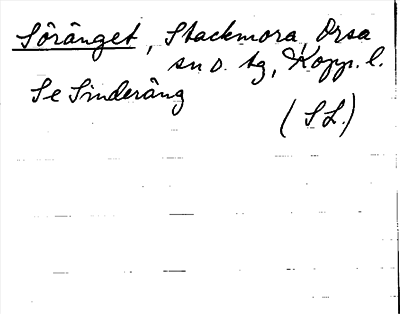 Söränget, Stackmora, Orsa
sn o. tg, Kopp. l.
Se Sinderäng
(S L.)